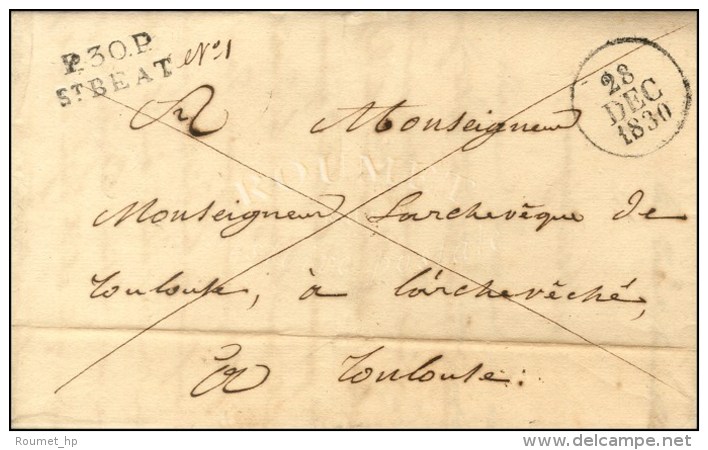 P.30.P.
ST BEAT
No 1
28
DEC
1830
A Monseigneur
Monseigneur Larchevêque de
Toulouse, à L'archevêché,
à Toulouse.
ROUMET
Roumet_hp
delcampe.net